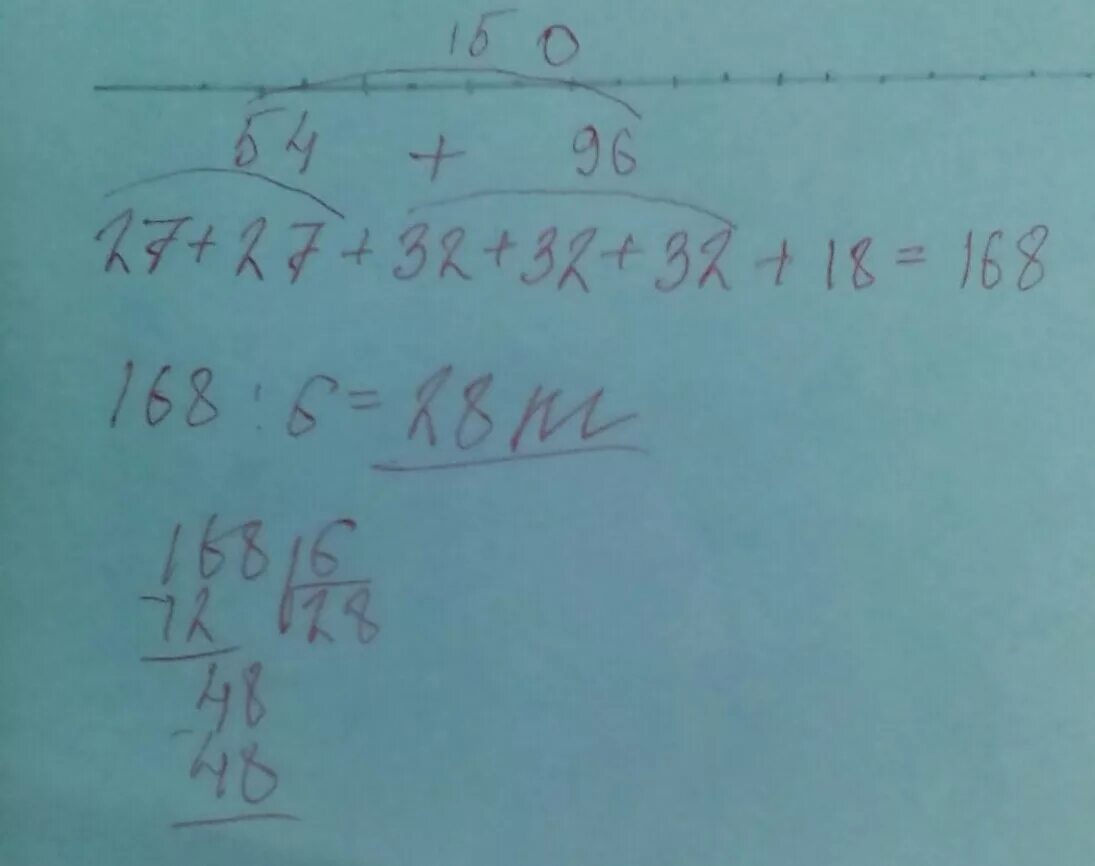 150
54 + 96
27+27+32+32+32+18=168
168:6=28
168 6
-12 28
48
-48